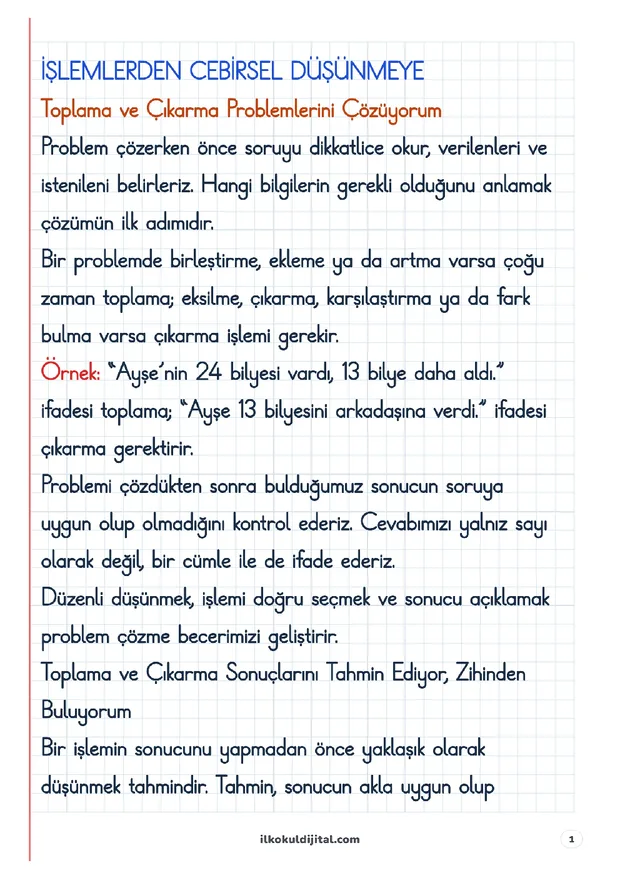 İŞLEMLERDEN CEBİRSEL DÜŞÜNMEYE
Toplama ve Çıkarma Problemlerini Çözüyorum
Problem çözerken önce soruyu dikkatlice okur, verilenleri ve
istenileni belirleriz. Hangi bilgilerin gerekli olduğunu anlamak
çözümün ilk adımıdır.
Bir problemde birleştirme, ekleme ya da artma varsa çoğu
zaman toplama; eksilme, çıkarma, karşılaştırma ya da fark
bulma varsa çıkarma işlemi gerekir.
Örnek: “Ayşe’nin 24 bilyesi vardı, 13 bilye daha aldı.”
ifadesi toplama; “Ayşe 13 bilyesini arkadaşına verdi.” ifadesi
çıkarma gerektirir.
Problemi çözdükten sonra bulduğumuz sonucun soruya
uygun olup olmadığını kontrol ederiz. Cevabımızı yalnız sayı
olarak değil, bir cümle ile de ifade ederiz.
Düzenli düşünmek, işlemi doğru seçmek ve sonucu açıklamak
problem çözme becerimizi geliştirir.
Toplama ve Çıkarma Sonuçlarını Tahmin Ediyor, Zihinden
Buluyorum
Bir işlemin sonucunu yapmadan önce yaklaşık olarak
düşünmek tahmindir. Tahmin, sonucun akla uygun olup
ilkokuldijital.com
1